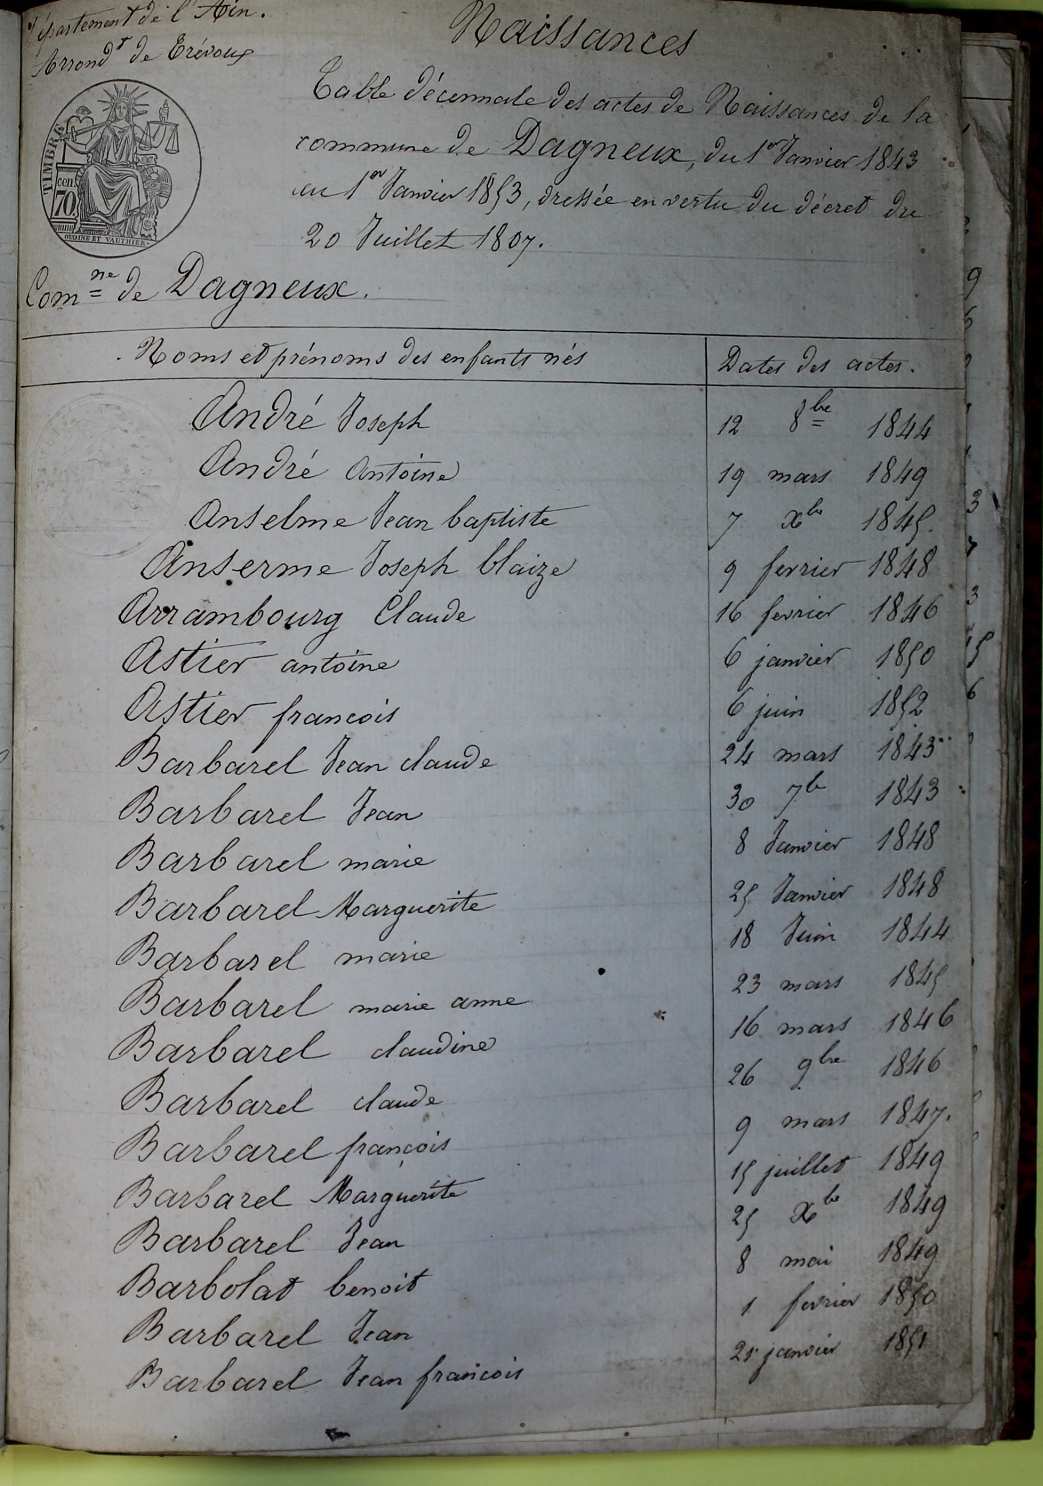 Département de l'Ain.
Arrondt de Trévoux
Naissances
Table décennale des actes de Naissances de la
commune de Dagneux, du 1er Janvier 1843
au 1er Janvier 1853, dressée en vertu du décret du
20 Juillet 1807.
TIMBRE
cen 70
Comne de Dagneux.
Noms et prénoms des enfants nés Dates des actes.
André Joseph 12 8bre 1844
André Antoine 19 mars 1849
Anselme Jean baptiste 7 Xbre 1845.
Anserme Joseph blaize 9 fevrier 1848
Arrambourg Claude 16 fevrier 1846
Astier antoine 6 janvier 1850
Astier francois 6 juin 1852
Barbarel Jean claude 24 mars 1843
Barbarel Jean 30 7b 1843
Barbarel marie 8 Janvier 1848
Barbarel Marguerite 25 Janvier 1848
Barbarel marie 18 Juin 1844
Barbarel marie anne 23 mars 1845
Barbarel claudine 16 mars 1846
Barbarel claude 26 9bre 1846
Barbarel françois 9 mars 1847.
Barbarel Marguerite 15 juillet 1849
Barbarel Jean 25 Xbre 1849
Barbolat benoit 8 mai 1849
Barbarel Jean 1 fevrier 1850
Barbarel Jean francois 21 janvier 1851